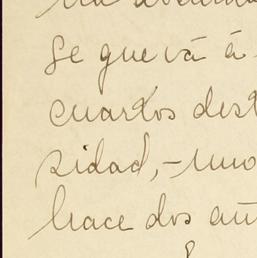 se que vá á
cuartos dest
sidad,-uno
hace dos añ